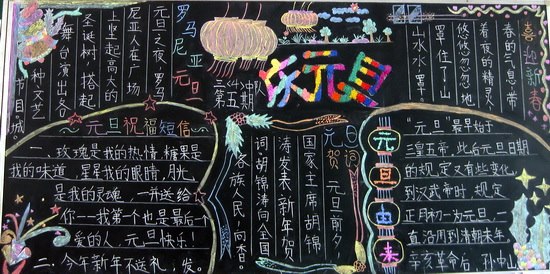 罗马尼亚
元旦
元旦之夜,罗马
尼亚人在广场
上竖起高大的
圣诞树 搭起
舞台演出各
种文艺
节目。城
庆元旦
喜迎新春
春的气息,带
着夜的精灵,
悠悠忽忽地
罩住了山
山水水罩
元旦祝福短信
一、玫瑰是我的热情,糖果是
我的味道,星星我的眼睛,月光
是我的灵魂,一并送给
你——我第个也是最后个
爱的人,元旦快乐!
二、今年新年不送礼,发。
元旦贺词
元旦前夕
国家主席胡锦
涛发表新年贺
词胡锦涛向全国
各族人民,向香。
元旦由来
“元旦”最早始于
三皇五帝,此后元旦日期
的规定又有些变化,
到汉武帝时,规定
正月初一为元旦,一
直沿用到清朝末年,
辛亥革命后,孙中山